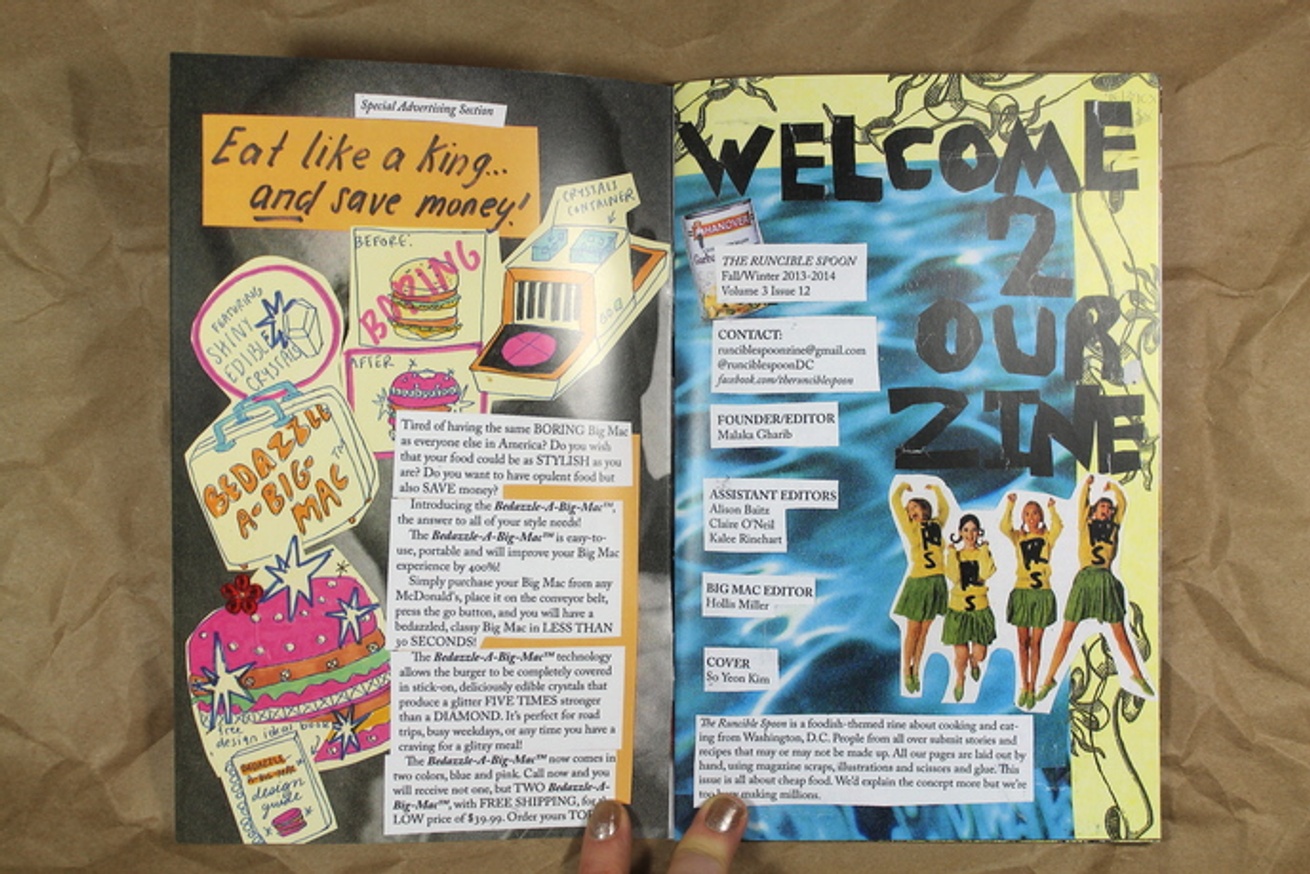 Special Advertising Section
Eat like a King...
and save money!
CRYSTALS
CONTAINER
GO
BEFORE:
BORING
AFTER
FEATURING
SHINY
EDIBLE
CRYSTALS
BEDAZZLE
A-BIG-
MAC™
free
design ideas book
BEDAZZLE
A-BIG-MAC
design
guide
Tired of having the same BORING Big Mac
as everyone else in America? Do you wish
that your food could be as STYLISH as you
are? Do you want to have opulent food but
also SAVE money?
Introducing the Bedazzle-A-Big-Mac™,
the answer to all of your style needs!
The Bedazzle-A-Big-Mac™ is easy-to-
use, portable and will improve your Big Mac
experience by 400%!
Simply purchase your Big Mac from any
McDonald's, place it on the conveyor belt,
press the go button, and you will have a
bedazzled, classy Big Mac in LESS THAN
30 SECONDS!
The Bedazzle-A-Big-Mac™ technology
allows the burger to be completely covered
in stick-on, deliciously edible crystals that
produce a glitter FIVE TIMES stronger
than a DIAMOND. It's perfect for road
trips, busy weekdays, or any time you have a
craving for a glitzy meal!
The Bedazzle-A-Big-Mac™ now comes in
two colors, blue and pink. Call now and you
will receive not one, but TWO Bedazzle-A-
Big-Mac™, with FREE SHIPPING, for
LOW price of $39.99. Order yours
WELCOME
2
OUR
ZINE
HANOVER
THE RUNCIBLE SPOON
Fall/Winter 2013-2014
Volume 3 Issue 12
CONTACT:
runciblespoonzine@gmail.com
@runciblespoonDC
facebook.com/theruncib​lespoon
FOUNDER/EDITOR
Malaka Gharib
ASSISTANT EDITORS
Alison Baitz
Claire O'Neil
Kalee Rinehart
BIG MAC EDITOR
Hollis Miller
COVER
So Yeon Kim
R S
R S
R S
R S
The Runcible Spoon is a foodish-themed zine about cooking and eat-
ing from Washington, D.C. People from all over submit stories and
recipes that may or may not be made up. All our pages are laid out by
hand, using magazine scraps, illustrations and scissors and glue. This
issue is all about cheap food. We'd explain the concept more but we're
too busy making millions.